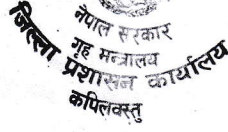 नेपाल सरकार
गृह मन्त्रालय
जिल्ला प्रशासन कार्यालय
कपिलवस्तु